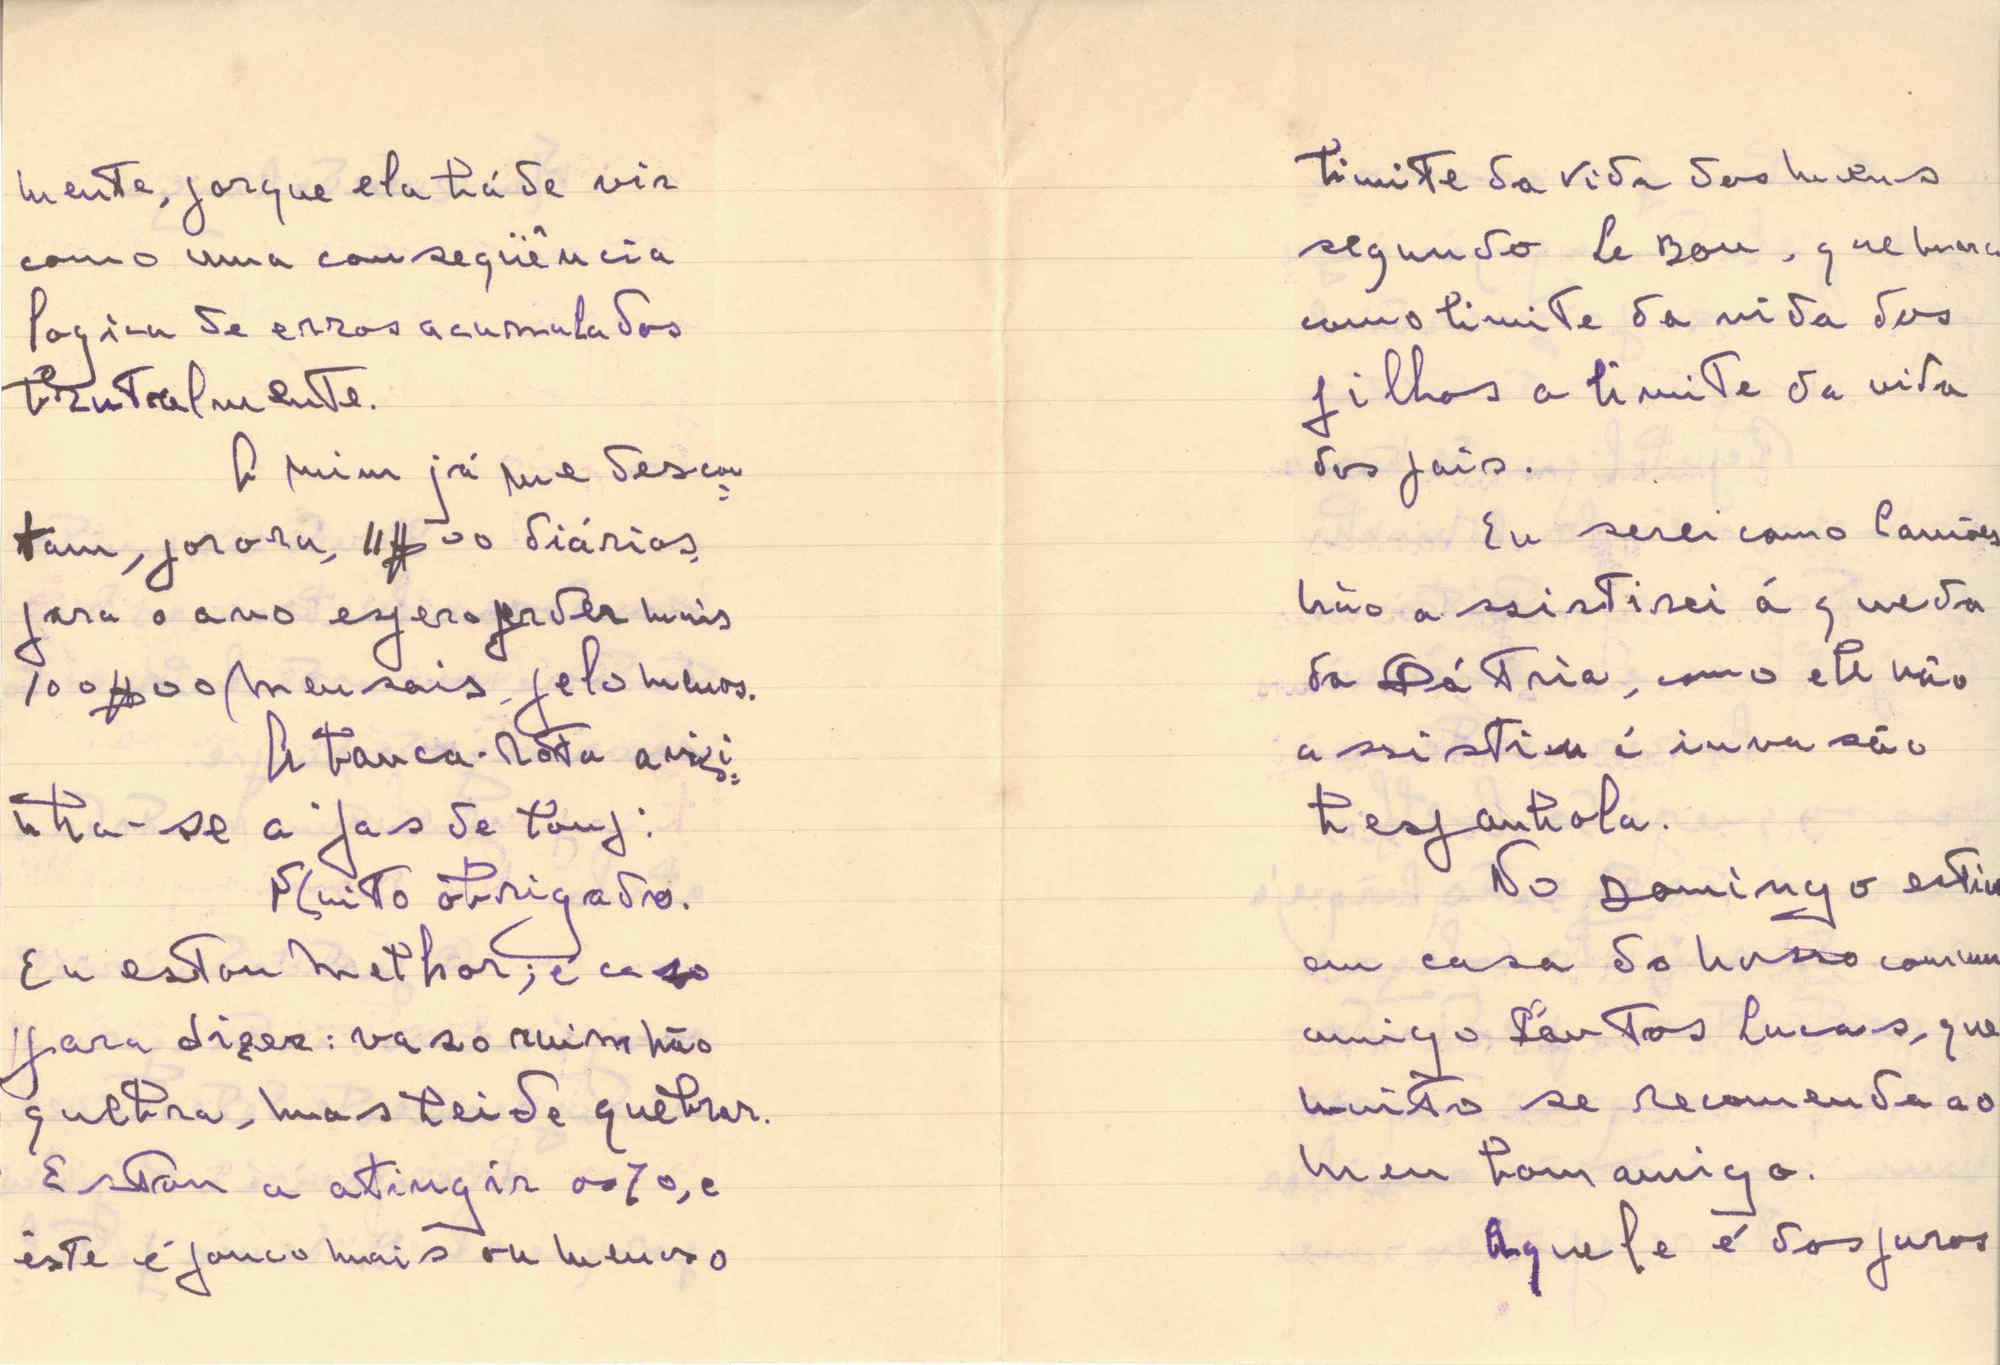 mente, porque ela há de vir
como uma conseqüência
logica de erros acumulados
brutalmente.
A mim já me descon=
tam, por ora, 11$00 diários,
para o ano espero perder mais
100$00/mensais, pelo menos.
A banca-rôta avizi=
nha-se a pas de loup:
Muito obrigado.
Eu estou melhor; é caso
para dizer: vaso ruim não
quebra, mas hei de quebrar.
Estou a atingir os 70, e
êste é pouco mais ou menos o
limite da vida dos meus
segundo Le Bon, que marca
como limite da vida dos
filhos o limite da vida
dos pais.
Eu serei como Camões
não assistirei á queda
da Pátria, como ele não
assistiu á invasão
hespanhola.
No Domingo estive
em casa do nosso comum
amigo Santos Lucas, que
muito se recomenda ao
meu bom amigo.
Aquele é dos puros